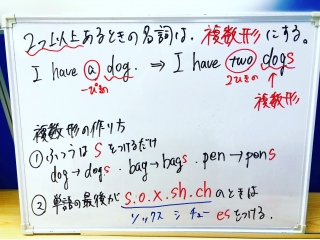 2つ以上あるときの名詞は、複数形にする。
I have a dog. ⇒ I have two dogs
一ぴきの 2ひきの ↑
複数形
複数形の作り方
① ふつうは sをつけるだけ
dog → dogs. bag → bags. pen → pens
② 単語の最後が s.o.x.sh.ch のときは
ソックス シチュー esをつける.